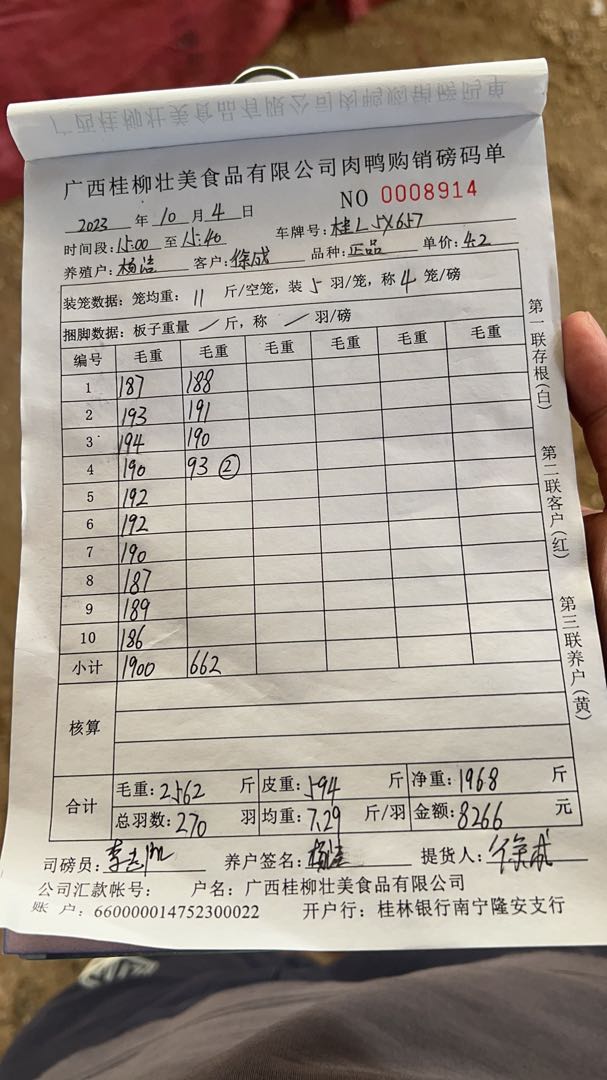 广西桂柳壮美食品有限公司肉鸭购销磅码单
NO 0008914
2023 年 10 月 4 日
时间段: 15:00 至 15:40 车牌号: 桂L5X657
养殖户: 杨洁 客户: 徐成 品种: 正品 单价: 4.2
装笼数据: 笼均重: 11 斤/空笼, 装 5 羽/笼, 称 4 笼/磅
捆脚数据: 板子重量 / 斤, 称 / 羽/磅
编号 毛重 毛重 毛重 毛重 毛重 毛重
1 187 188
2 193 191
3 194 190
4 190 93 ②
5 192
6 192
7 190
8 187
9 189
10 186
小计 1900 662
核算
合计 毛重: 2562 斤 皮重: 594 斤 净重: 1968 斤
总羽数: 270 羽 均重: 7.29 斤/羽 金额: 8266 元
司磅员: 李 养户签名: 杨洁 提货人: 徐成
公司汇款帐号: 户名: 广西桂柳壮美食品有限公司
账 户: 660000014752300022 开户行: 桂林银行南宁隆安支行
第一联存根(白)
第二联客户(红)
第三联养户(黄)